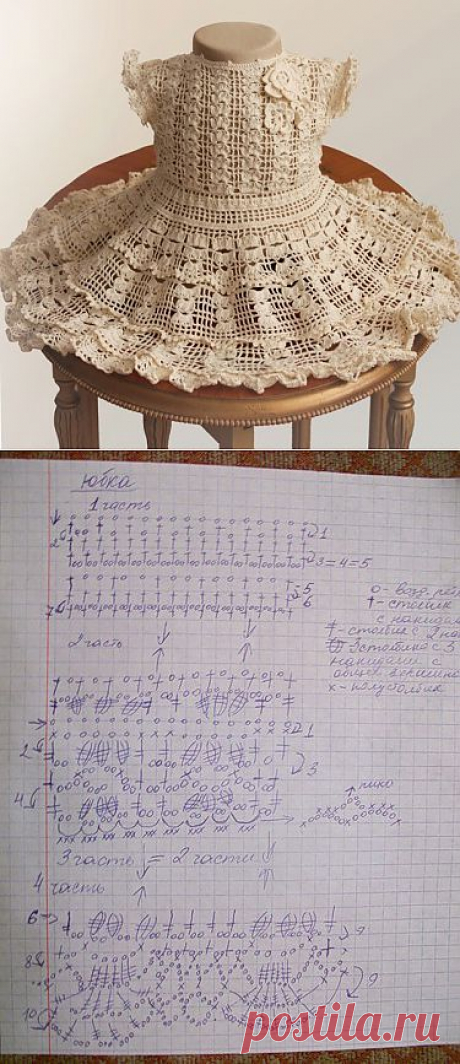 Юбка
1 часть
1
2
3=4=5
5
6
7
о - возд. пе
† - столбик
с накидом
‡ - столбик с 2 на
3 столбика с 3
накидами с
общей вершино
х - полустолбик
2 часть
1
2
3
4
пико
xxx xxx xxx xxx xxx xxx
3 часть = 2 части
4 часть
6
8
9
10
postila.ru